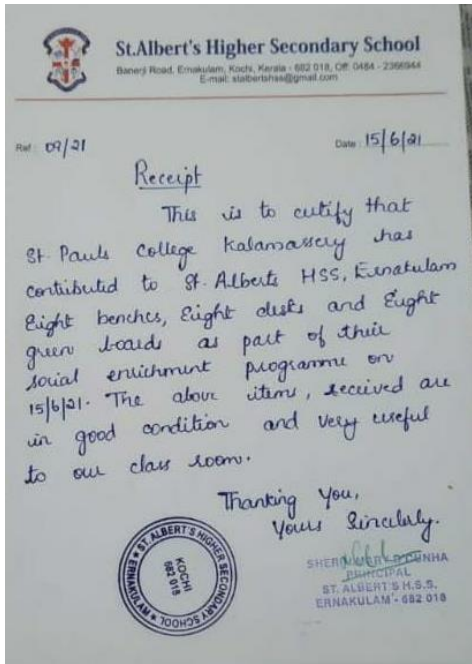 St.Albert's Higher Secondary School
Banerji Road, Ernakulam, Kochi, Kerala - 682 018, Off: 0484 - 2366944
E-mail: stalbertshss@gmail.com
Ref : 09/21
Date : 15/6/21
Receipt
This is to cutify that
St. Pauls College Kalamassery has
contributed to St. Alberts HSS, Ernakulam
Eight benches, Eight desks and Eight
green boards as part of their
social enrichment programme on
15/6/21. The above items, received are
in good condition and very useful
to our class room.
Thanking You,
Yours Sincerely.
PRINCIPAL
ST. ALBERT'S H.S.S.
ERNAKULAM - 682 018
ST. ALBERT'S HIGHER SECONDARY SCHOOL
ERNAKULAM
KOCHI
682 018